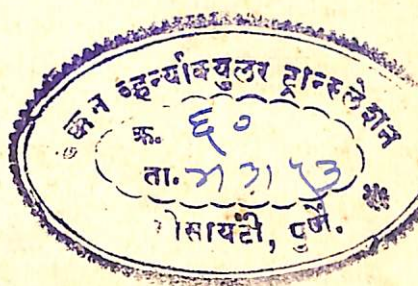 क्कन व्हर्न्याक्युलर ट्रान्स्लेशन
क्र. ६०
ता.
सोसायटी, पुणें.